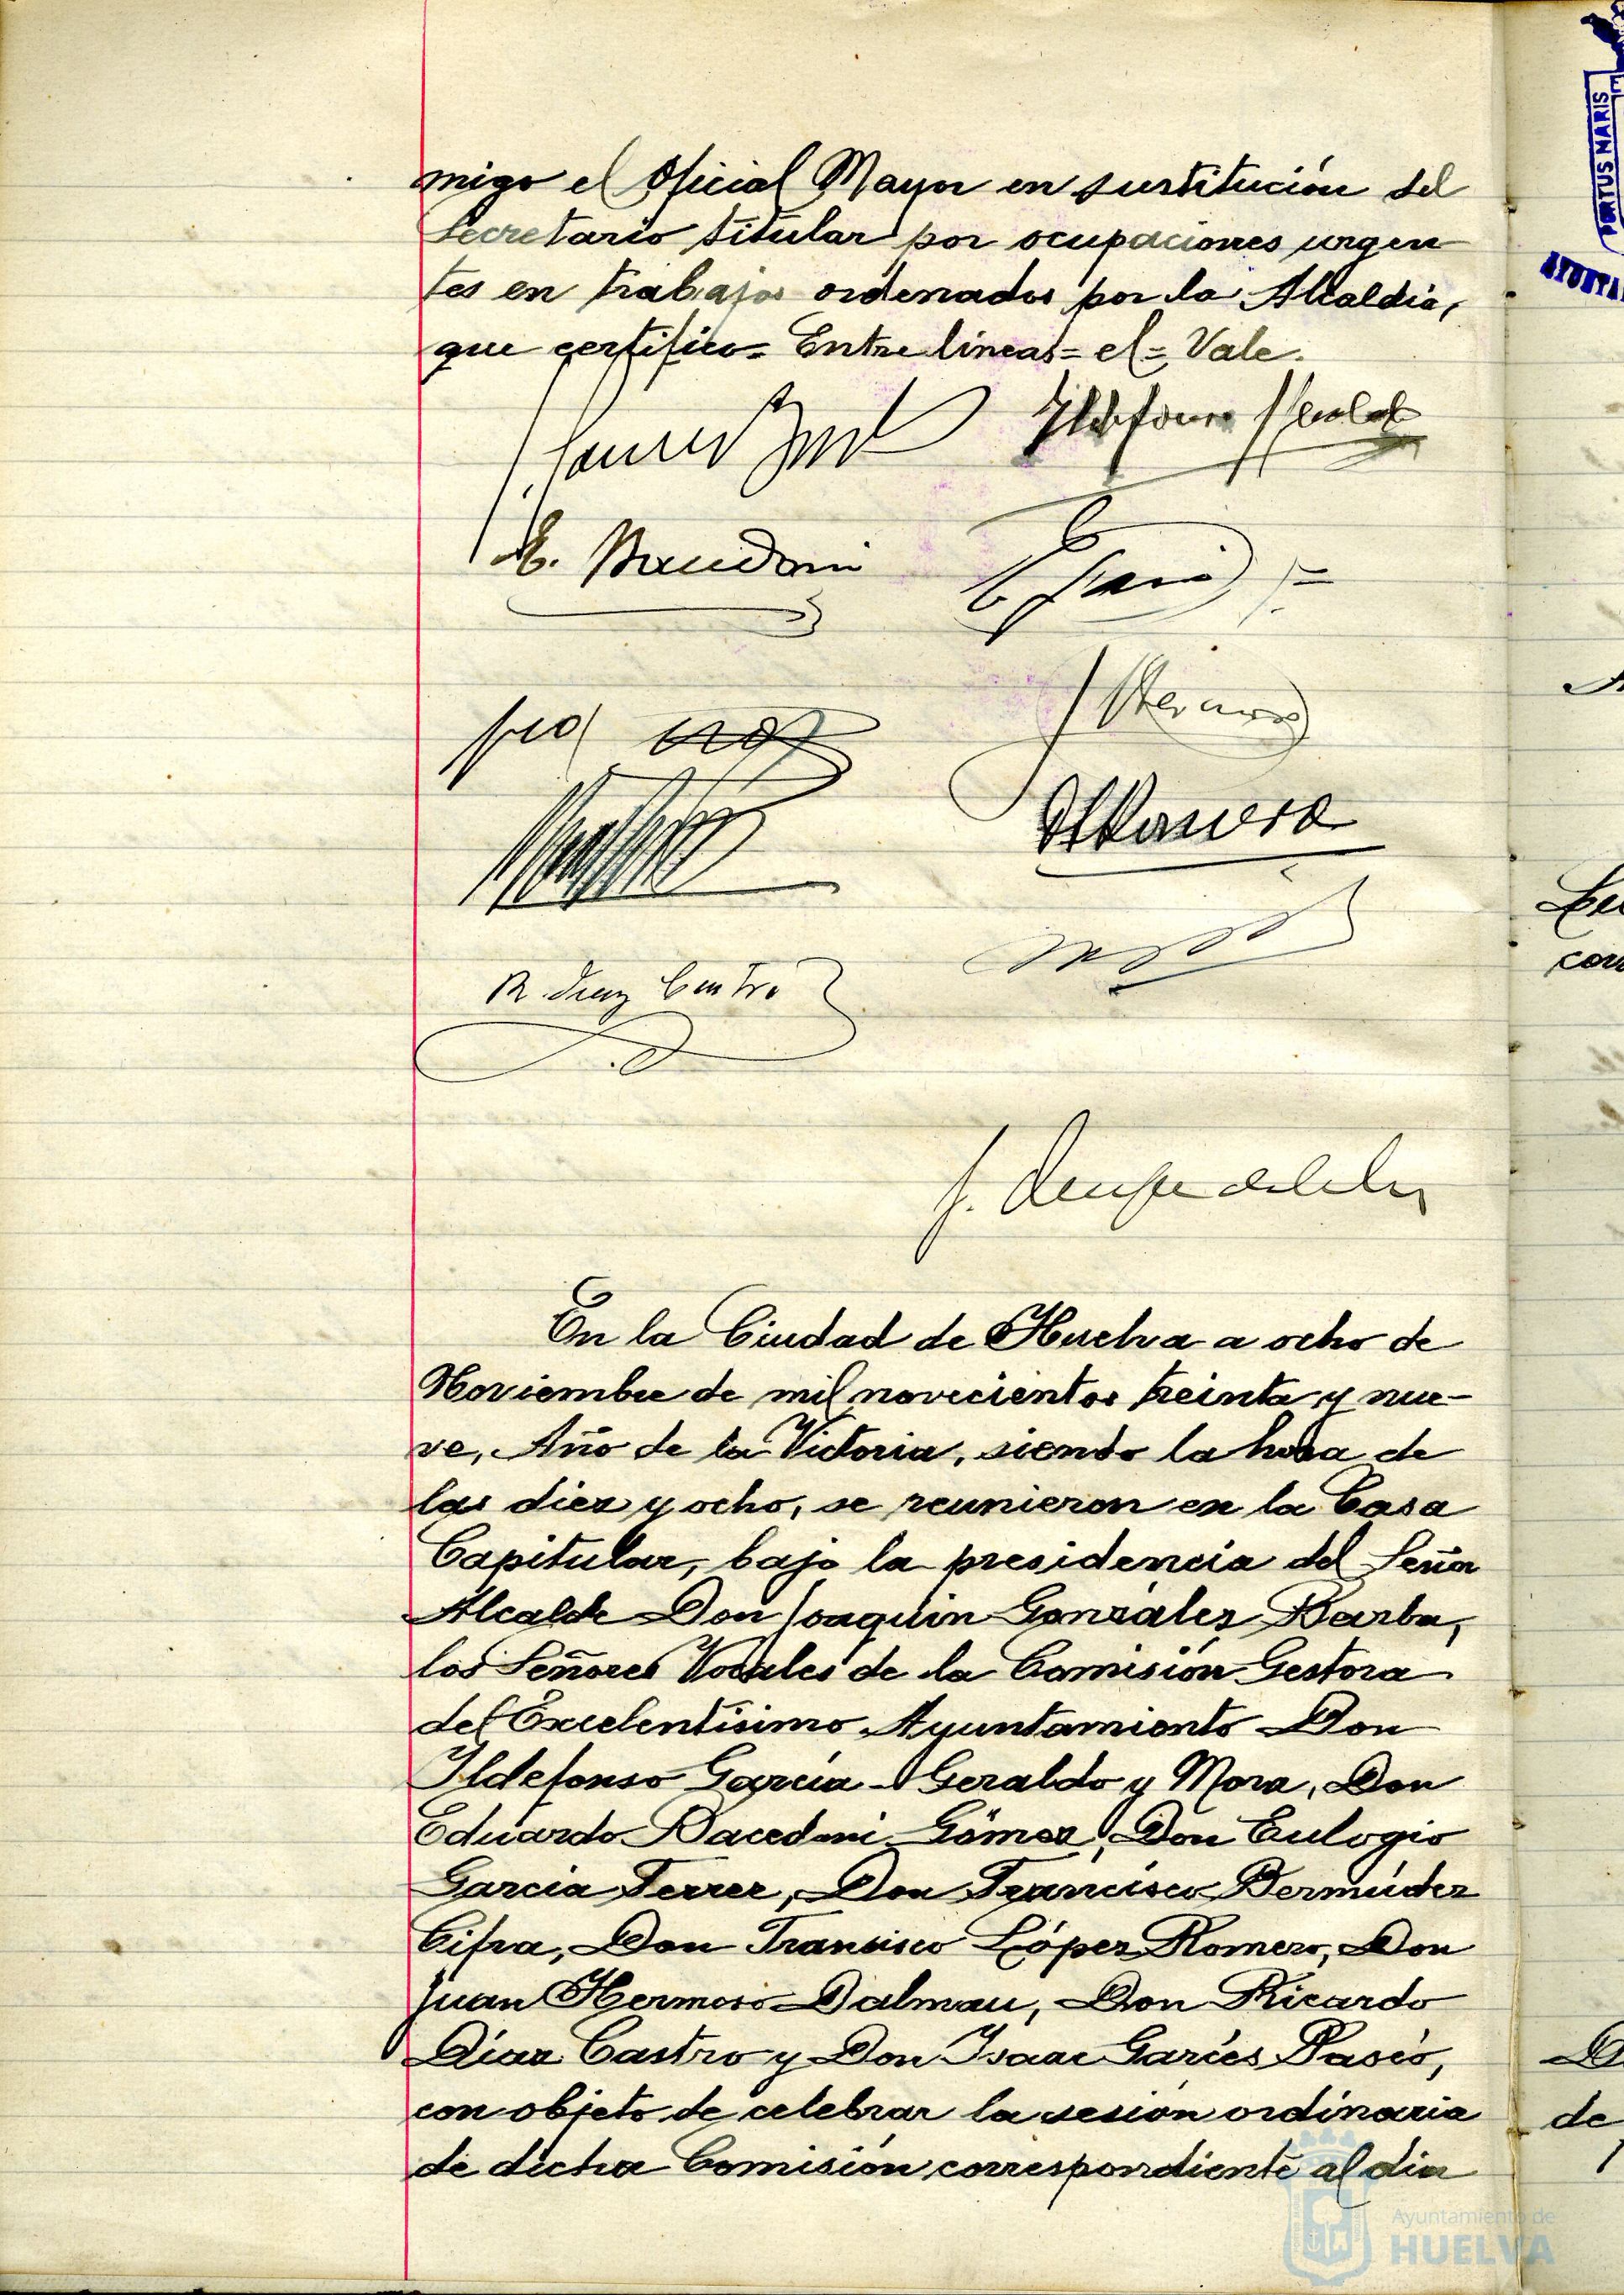 migo el Oficial Mayor en sustitución del
Secretario titular por ocupaciones urgen
tes en trabajos ordenados por la Alcaldia,
que certifico= Entre lineas= el= Vale.
R. Diaz Castro
En la Ciudad de Huelva a ocho de
Noviembre de mil novecientos treinta y nue-
ve, Año de la Victoria, siendo la hora de
las diez y ocho, se reunieron en la Casa
Capitular, bajo la presidencia del Señor
Alcalde Don Joaquin González Barba,
los Señores Vocales de la Comisión Gestora
del Excelentísimo Ayuntamiento Don
Ildefonso García-Geraldo y Mora, Don
Eduardo Gómez, Don Eulogio
García Ferrer, Don Francisco Bermúdez
Cifra, Don Francisco López Romero, Don
Juan Hermoso Dalmau, Don Ricardo
Díaz Castro y Don Isaac Garcés
con objeto de celebrar la sesión ordinaria
de dicha Comisión correspondiente al dia
PORTUS MARIS
de
Ayuntamiento de
HUELVA